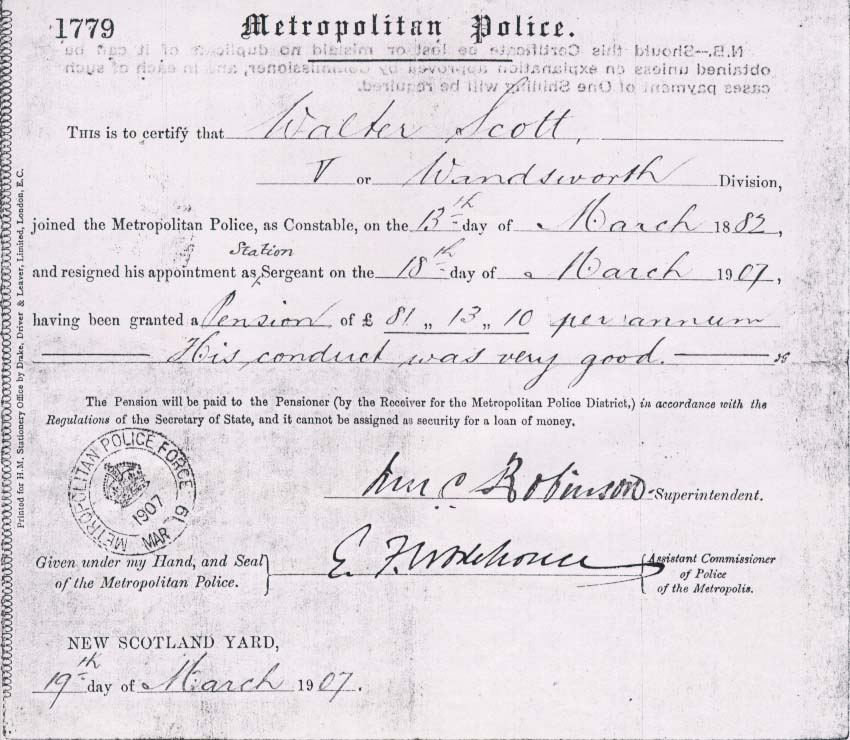 1779 Metropolitan Police.
N.B.—Should this Certificate be lost or mislaid no duplicate of it can be
obtained unless on explanation approved by Commissioner, and in each of such
cases payment of One Shilling will be required.
THIS is to certify that Walter Scott,
V or Wandsworth Division,
joined the Metropolitan Police, as Constable, on the 13th day of March 1882,
Station
and resigned his appointment as Sergeant on the 18th day of March 1907,
having been granted a Pension of £ 81 „ 13 „ 10 per annum
His conduct was very good.
The Pension will be paid to the Pensioner (by the Receiver for the Metropolitan Police District,) in accordance with the
Regulations of the Secretary of State, and it cannot be assigned as security for a loan of money.
METROPOLITAN POLICE FORCE
1907
MAR 19
Robinson Superintendent.
Given under my Hand, and Seal
of the Metropolitan Police.
E. F. Wodehouse
Assistant Commissioner
of Police
of the Metropolis.
NEW SCOTLAND YARD,
19th day of March 1907.
Printed for H.M. Stationery Office by Drake, Driver & Leaver, Limited, London, E.C.